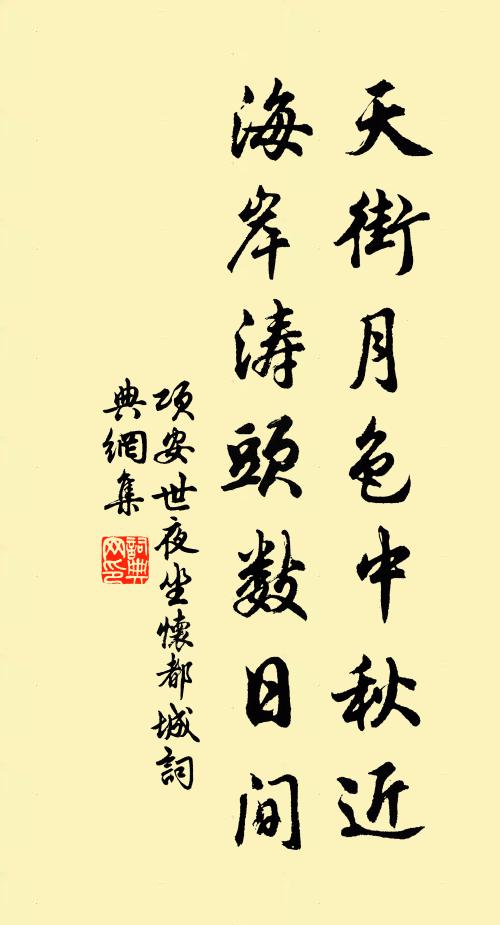 天街月色中秋近
海岸涛頭數日间
项安世夜坐懷都城詞
典網集
詞典网印